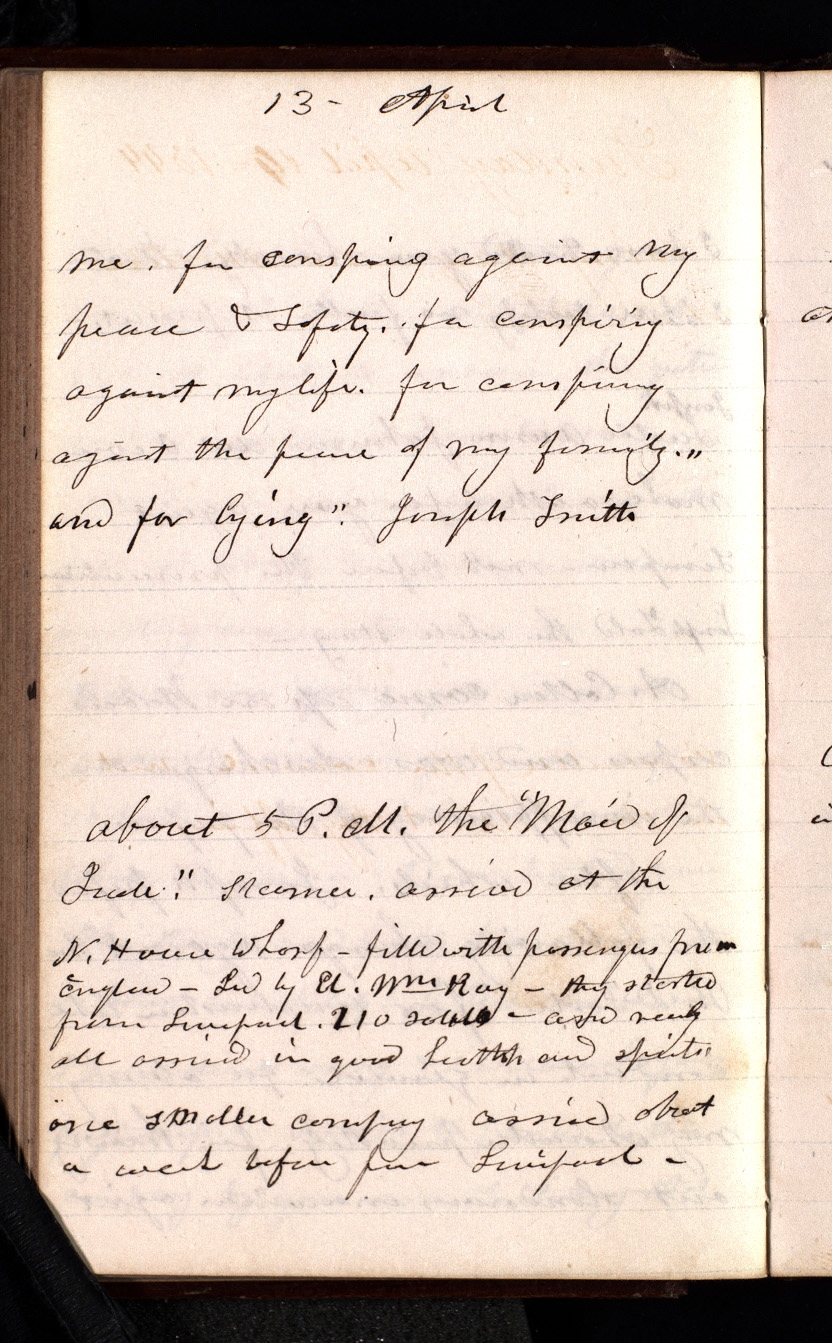 13 - April
me. for conspiring against my
peace & Safety. for conspiring
against my life. for conspiring
against the peace of my family."
and for lying". Joseph Smith
about 5 P.M. the "Maid of
Steamer. arrived at the
N. House Wharf - filld with passengers from
England - Led by El. Wm Kay - they started
from Liverpool. 210 souls - and nearly
all arrived in good health and spirits
one smaller company arrived about
a week before from Liverpool -